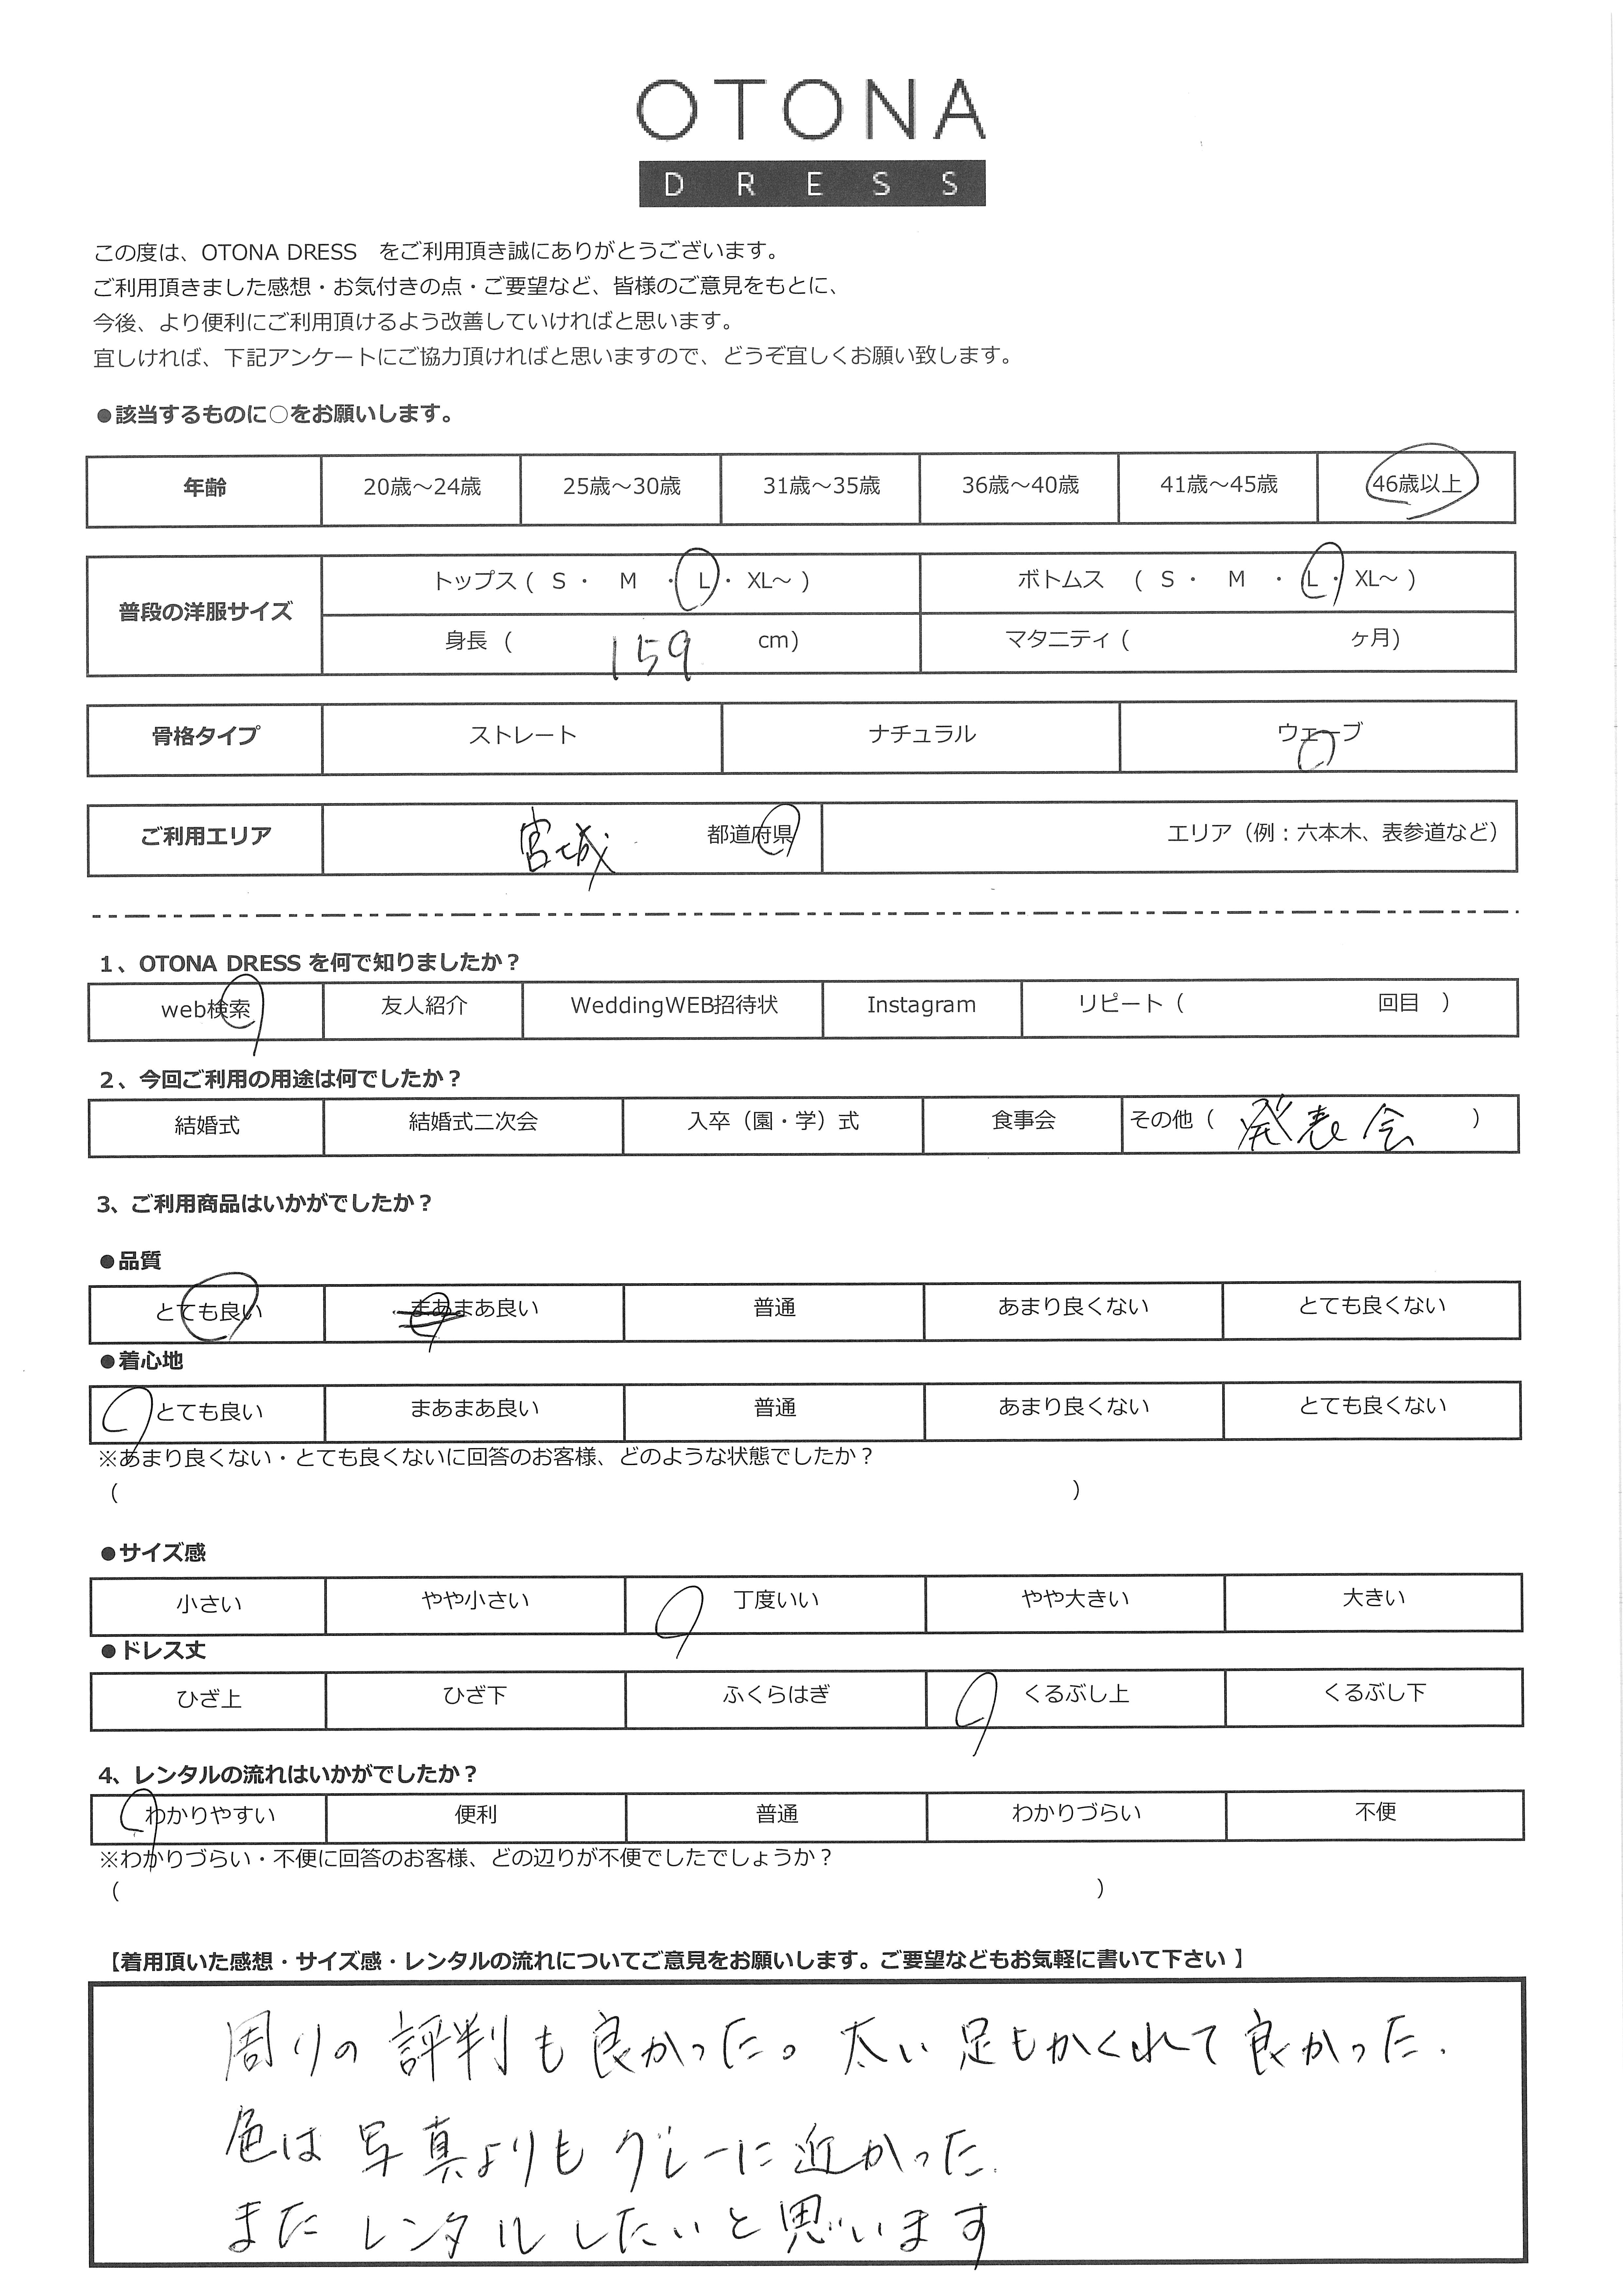 OTONA
DRESS
この度は、OTONA DRESS をご利用頂き誠にありがとうございます。
ご利用頂きました感想・お気付きの点・ご要望など、皆様のご意見をもとに、
今後、より便利にご利用頂けるよう改善していければと思います。
宜しければ、下記アンケートにご協力頂ければと思いますので、どうぞ宜しくお願い致します。
●該当するものに○をお願いします。
年齢 20歳～24歳 25歳～30歳 31歳～35歳 36歳～40歳 41歳～45歳 46歳以上
普段の洋服サイズ
トップス ( S ・ M ・ L ・ XL～ ) ボトムス ( S ・ M ・ L ・ XL～ )
身長 ( 159 cm) マタニティ ( ヶ月)
骨格タイプ ストレート ナチュラル ウェーブ
ご利用エリア 宮城 都道府県 エリア（例：六本木、表参道など）
1、OTONA DRESS を何で知りましたか？
web検索 友人紹介 WeddingWEB招待状 Instagram リピート（ 回目 ）
2、今回ご利用の用途は何でしたか？
結婚式 結婚式二次会 入卒（園・学）式 食事会 その他（ 発表会 ）
3、ご利用商品はいかがでしたか？
●品質
とても良い まあまあ良い 普通 あまり良くない とても良くない
●着心地
とても良い まあまあ良い 普通 あまり良くない とても良くない
※あまり良くない・とても良くないに回答のお客様、どのような状態でしたか？
（ ）
●サイズ感
小さい やや小さい 丁度いい やや大きい 大きい
●ドレス丈
ひざ上 ひざ下 ふくらはぎ くるぶし上 くるぶし下
4、レンタルの流れはいかがでしたか？
わかりやすい 便利 普通 わかりづらい 不便
※わかりづらい・不便に回答のお客様、どの辺りが不便でしたでしょうか？
（ ）
【着用頂いた感想・サイズ感・レンタルの流れについてご意見をお願いします。ご要望などもお気軽に書いて下さい 】
周りの評判も良かった。太い足もかくれて良かった.
色は写真よりもグレーに近かった.
またレンタルしたいと思います